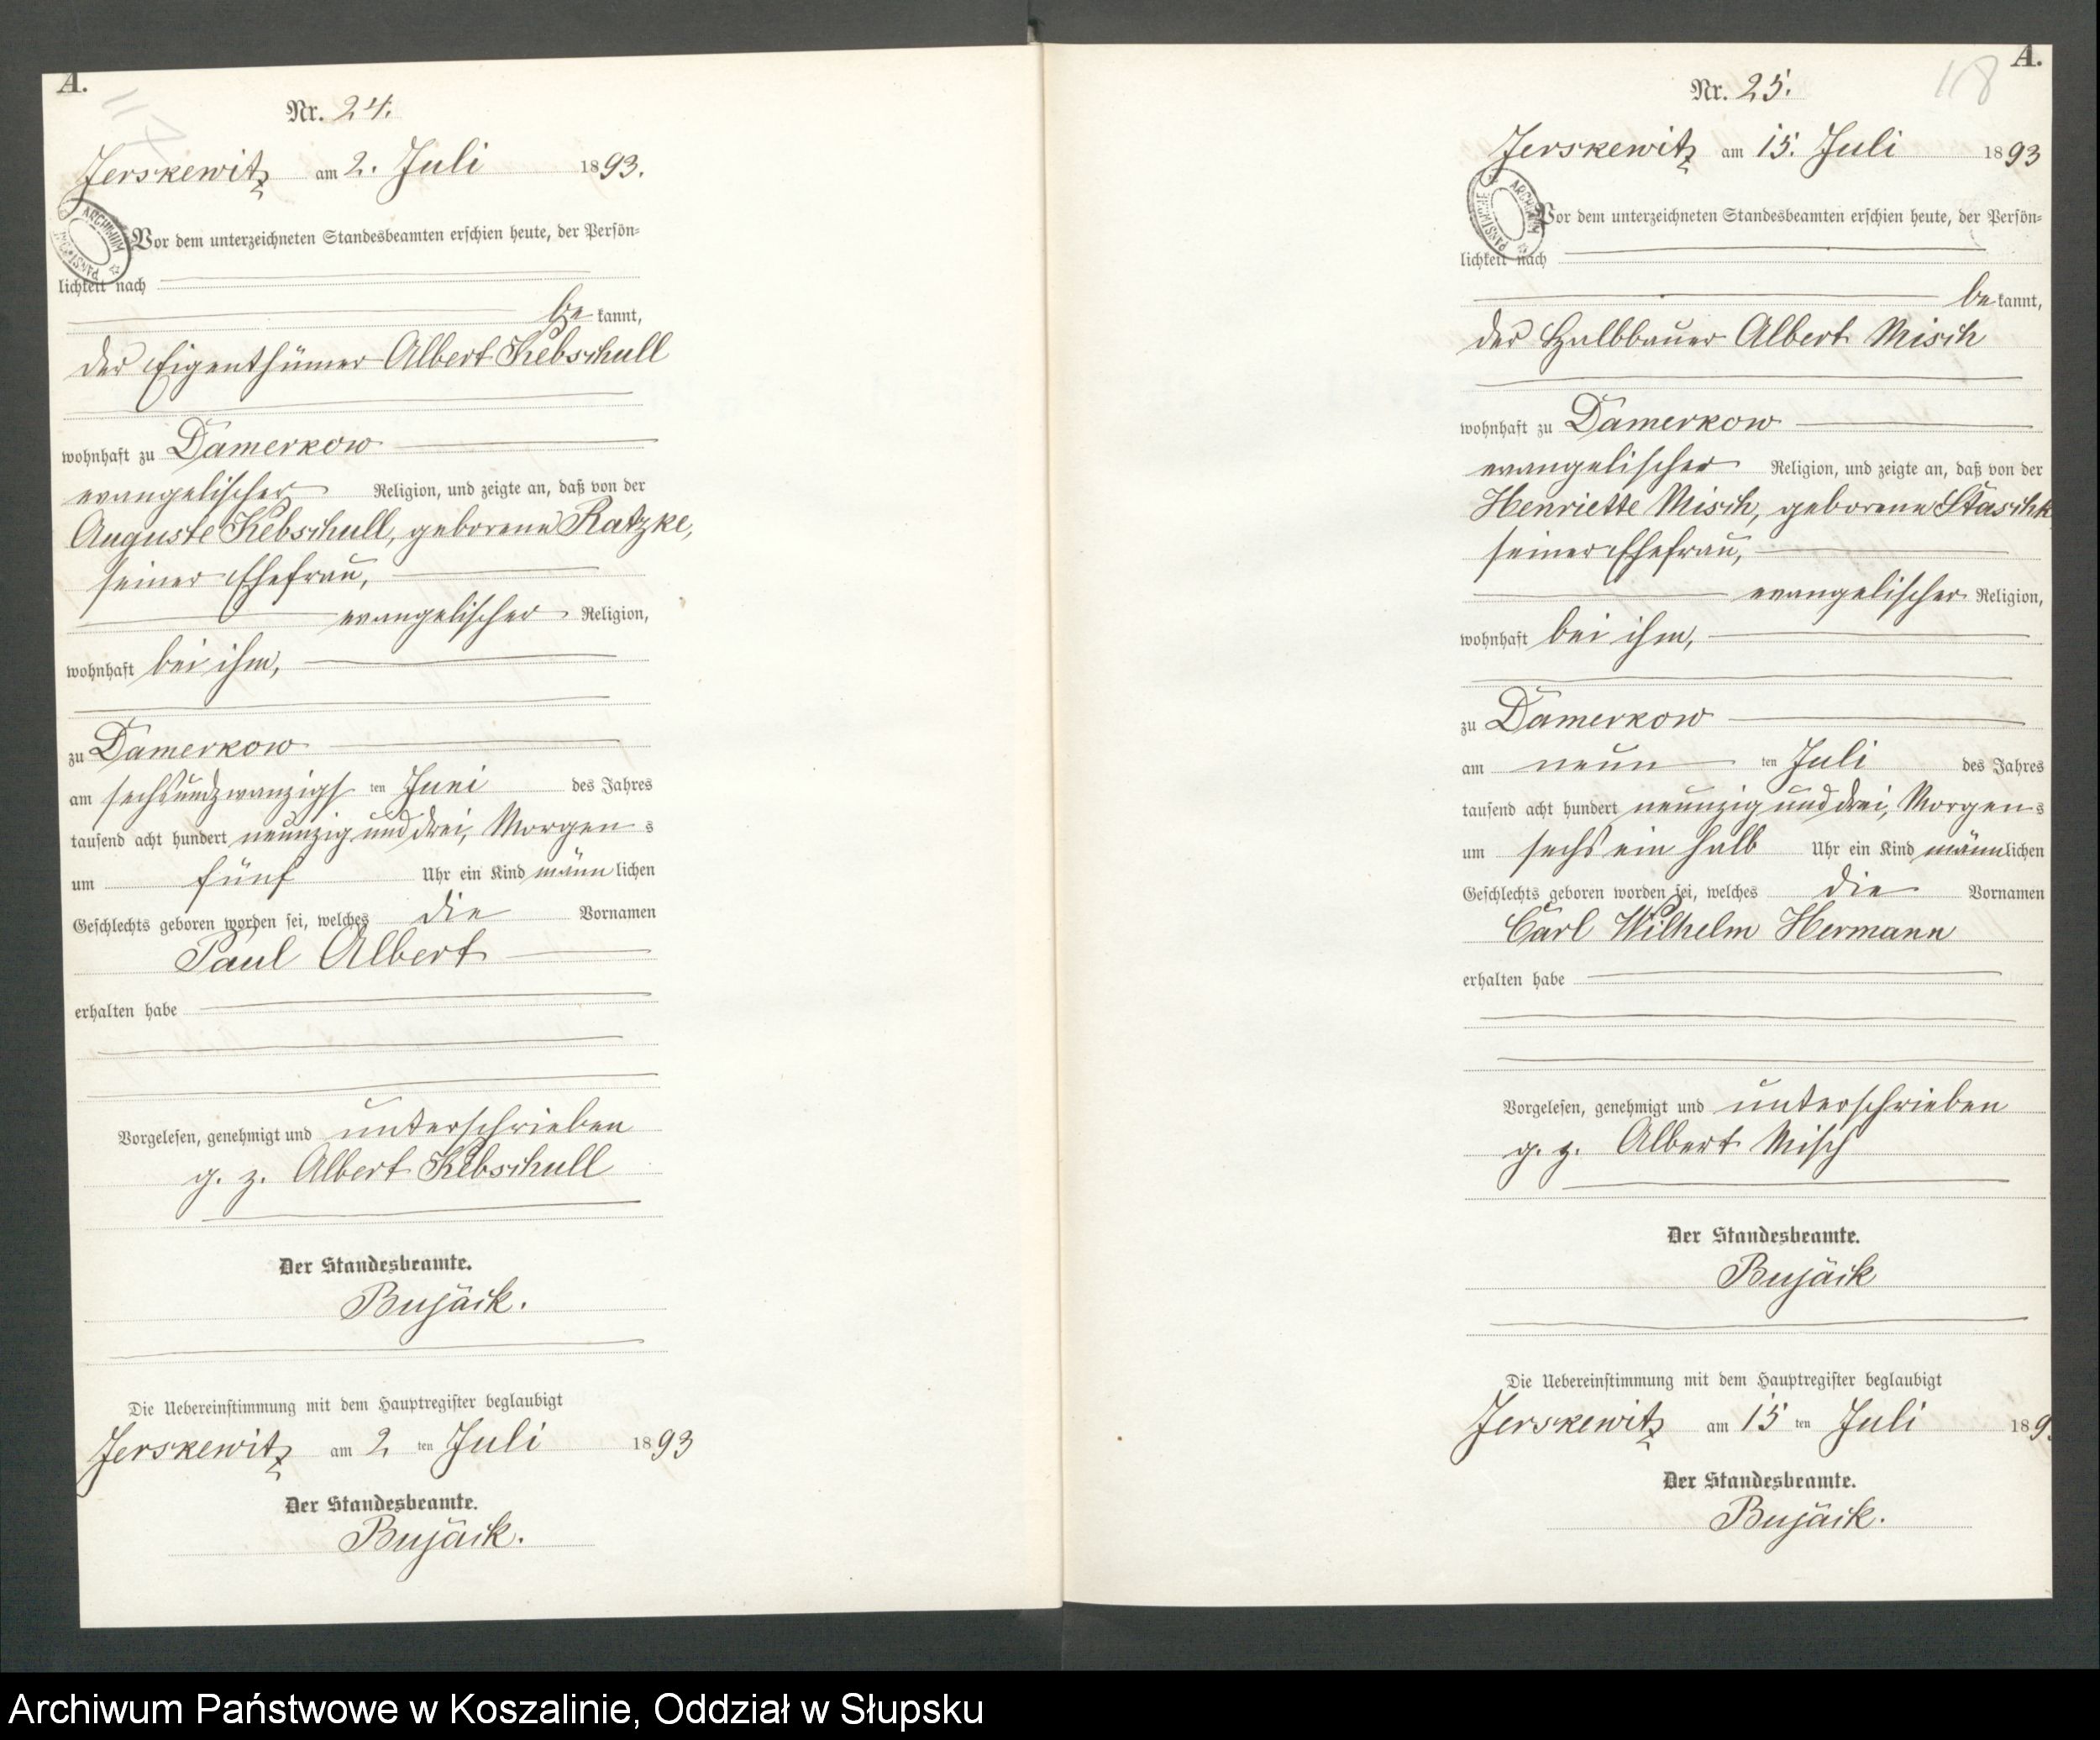 A.
117
Nr. 24.
Jerskewitz am 2. Juli 1893.
Vor dem unterzeichneten Standesbeamten erschien heute, der Persön-
lichkeit nach
be kannt,
der Eigenthümer Albert Kebschull
wohnhaft zu Damerkow
evangelischer Religion, und zeigte an, daß von der
Auguste Kebschull, geborene Ratzke,
seiner Ehefrau,
evangelischer Religion,
wohnhaft bei ihm,
zu Damerkow
am sechsundzwanzigs ten Juni des Jahres
tausend acht hundert neunzig und drei, Morgen s
um fünf Uhr ein Kind männ lichen
Geschlechts geboren worden sei, welches die Vornamen
Paul Albert
erhalten habe
Vorgelesen, genehmigt und unterschrieben
g. z. Albert Kebschull
Der Standesbeamte.
Bujäck.
Die Uebereinstimmung mit dem Hauptregister beglaubigt
Jerskewitz am 2 ten Juli 1893
Der Standesbeamte.
Bujäck.
A.
118
Nr. 25.
Jerskewitz am 15. Juli 1893
ARCHIWUM PAŃSTWOWE
Vor dem unterzeichneten Standesbeamten erschien heute, der Persön-
lichkeit nach
be kannt,
der Halbbauer Albert Misch
wohnhaft zu Damerkow
evangelischer Religion, und zeigte an, daß von der
Henriette Misch, geborene Staschk
seiner Ehefrau,
evangelischer Religion,
wohnhaft bei ihm,
zu Damerkow
am neun ten Juli des Jahres
tausend acht hundert neunzig und drei, Morgen s
um sechs ein halb Uhr ein Kind männlichen
Geschlechts geboren worden sei, welches die Vornamen
Carl Wilhelm Hermann
erhalten habe
Vorgelesen, genehmigt und unterschrieben
g. z. Albert Misch
Der Standesbeamte.
Bujäck
Die Uebereinstimmung mit dem Hauptregister beglaubigt
Jerskewitz am 15 ten Juli 189
Der Standesbeamte.
Bujäck.
Archiwum Państwowe w Koszalinie, Oddział w Słupsku